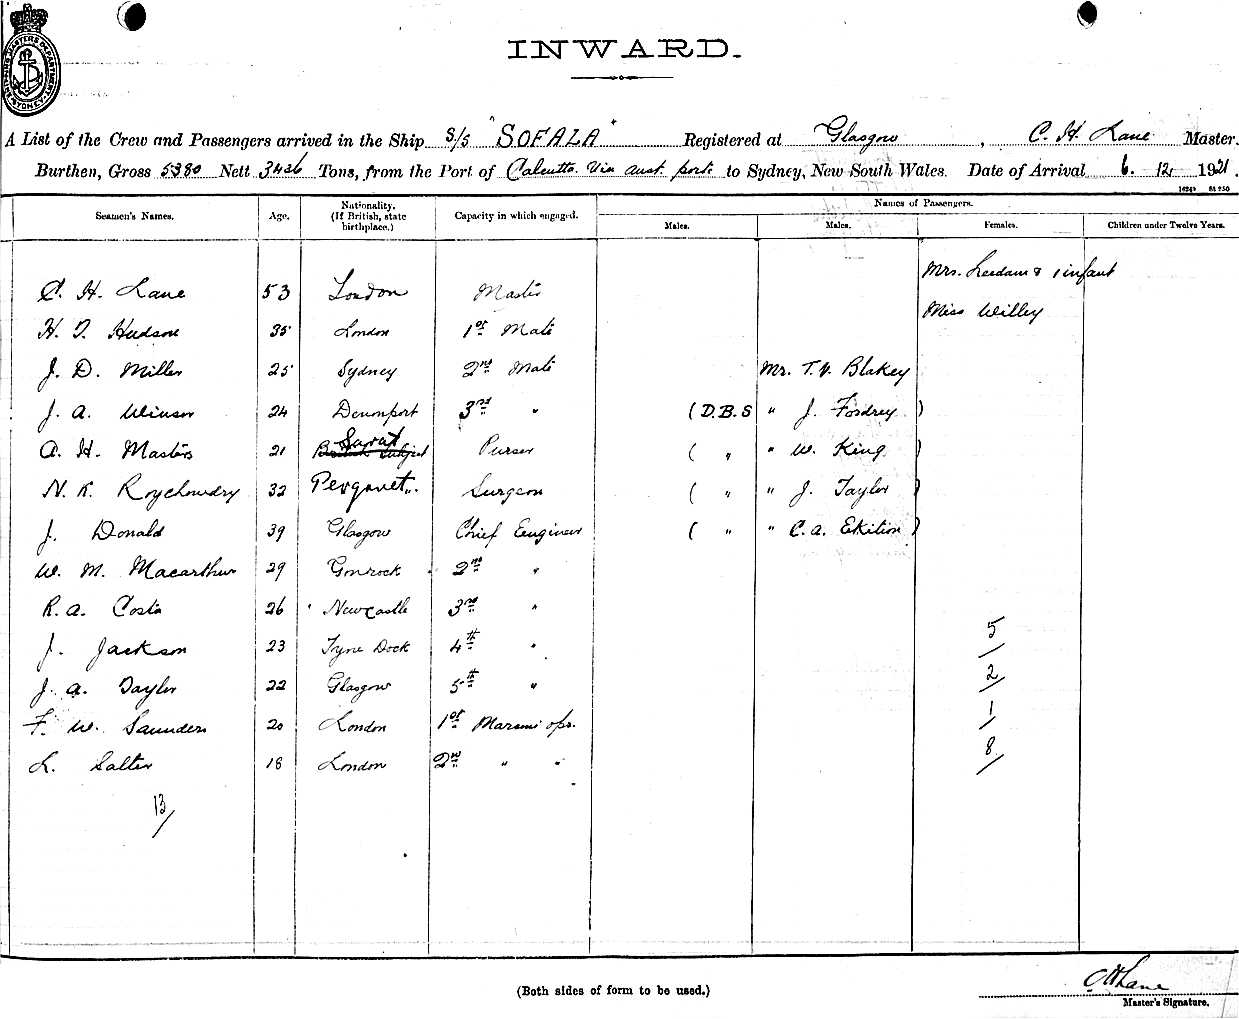 SHIPPING MASTERS DEPARTMENT SYDNEY
INWARD.
A List of the Crew and Passengers arrived in the Ship S/S "SOFALA" Registered at Glasgow, C. H. Lane Master.
Burthen, Gross 5380 Nett 3426 Tons, from the Port of Calcutta via Aust. ports to Sydney, New South Wales. Date of Arrival 6. 12 1921.
Seamen's Names. Age. Nationality. (If British, state birthplace.) Capacity in which engaged. Names of Passengers.
Males. Males. Females. Children under Twelve Years.
Mrs. Leedam & 1 infant
C. H. Lane 53 London Master
Miss Willey
H. T. Hudson 35 London 1st Mate
J. D. Miller 25 Sydney 2nd Mate Mr. T. V. Blakey
J. A. Winsor 24 Devonport 3rd " (D.B.S " J. Fordrey )
A. H. Masters 21 Surat Purser ( " " W. King )
N. K. Roychowdry 32 Surgeon ( " " J. Taylor )
J. Donald 39 Glasgow Chief Engineer ( " " C. A. )
W. M. Macarthur 29 Gourock 2nd "
R. A. Costa 26 Newcastle 3rd "
5/
J. Jackson 23 Tyne Dock 4th "
2/
J. A. Taylor 22 Glasgow 5th "
1/
F. W. Saunders 20 London 1st Marconi opr.
8/
L. Salter 18 London 2nd " "
13/
C H Lane
(Both sides of form to be used.)
Master's Signature.